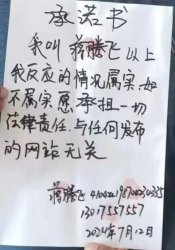 承诺书
我叫蒋腾飞以上
我反应的情况属实.如
不属实愿承担一切
法律责任.与任何发布
的网站无关
蒋腾飞
13017557557
2024年7月12日